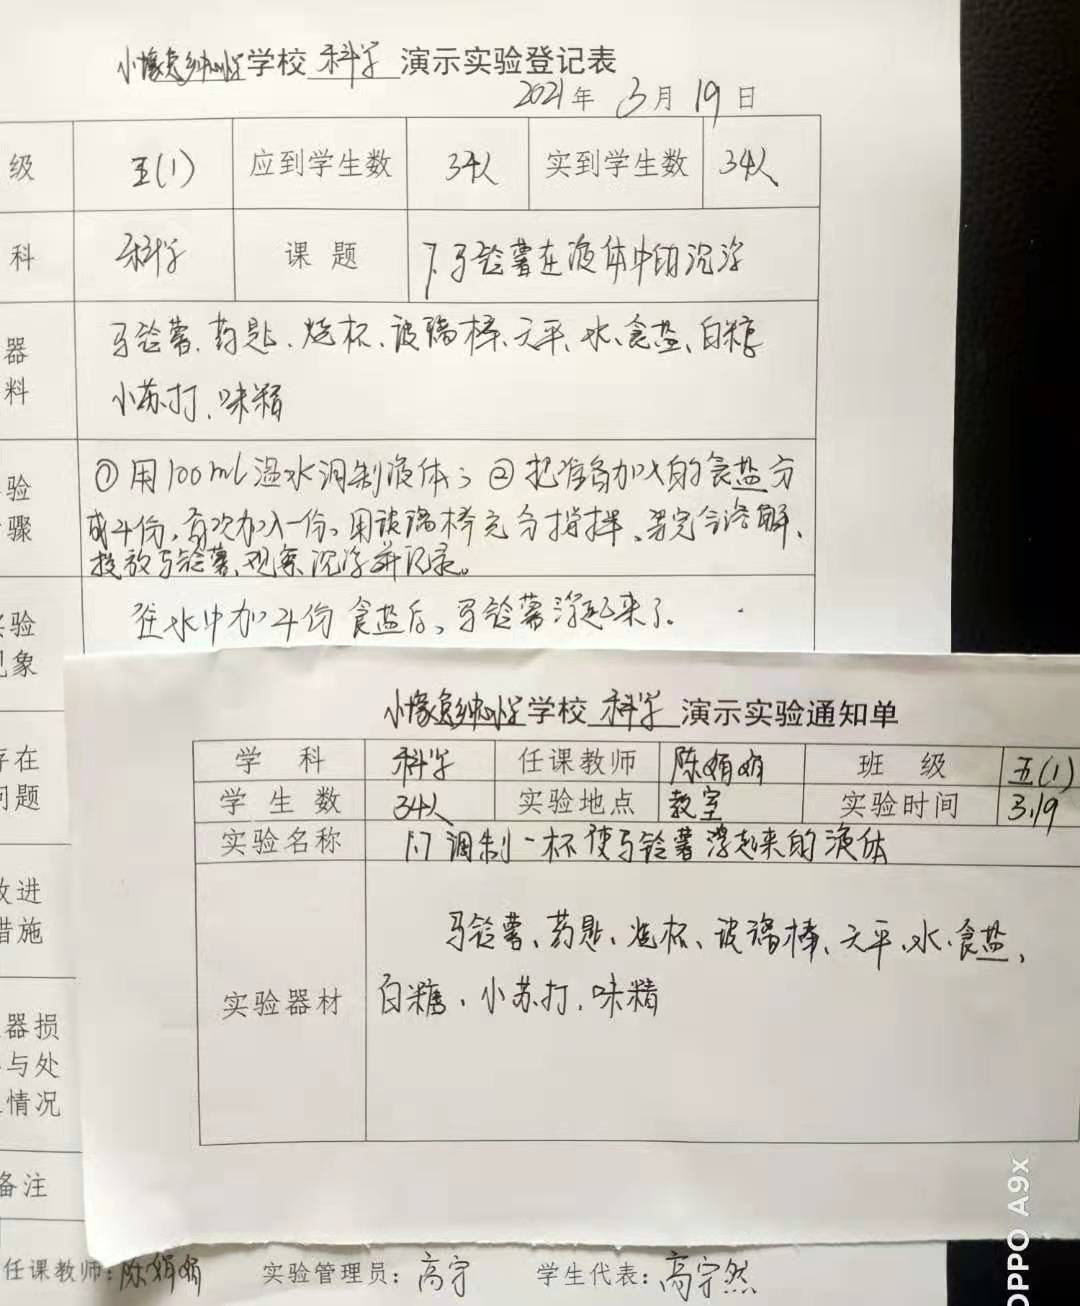 小橡宛乡中心小学学校 科学 演示实验登记表
2021年 3月 19日
级 五(1) 应到学生数 34人 实到学生数 34人
科 科学 课题 1.7马铃薯在液体中的沉浮
器 马铃薯、药匙、烧杯、玻璃棒、天平、水、食盐、白糖
料 小苏打、味精
验 ①用100ml温水调制液体；②把准备加入的食盐分
骤 成4份，每次加入一份，用玻璃棒充分搅拌、等完全溶解、
投放马铃薯、观察沉浮并记录。
验 在水中加4份食盐后，马铃薯浮起来了.
象
学校 科学 演示实验通知单
学科 科学 任课教师 陈娟娟 班级 五(1)
学生数 34人 实验地点 教室 实验时间 3.19
实验名称 1.7调制一杯使马铃薯浮起来的液体
马铃薯、药匙、烧杯、玻璃棒、天平、水、食盐、
实验器材 白糖、小苏打、味精
存在
问题
改进
措施
器损
与处
情况
备注
任课教师：陈娟娟 实验管理员：高宇 学生代表：高宇然
OPPO A9x